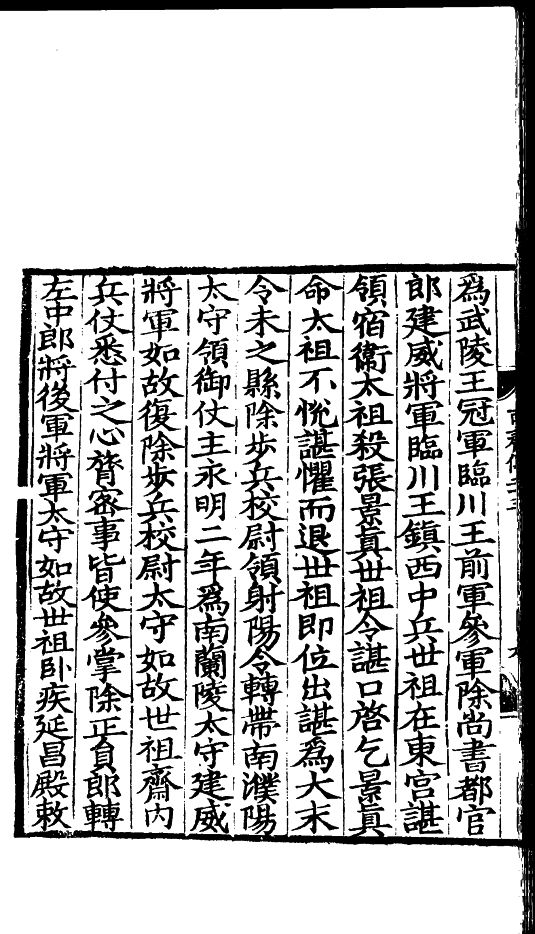 為武陵王冠軍臨川王前軍參軍除尚書都官
郎建威將軍臨川王鎮西中兵世祖在東宮諶
領宿衞太祖殺張景真世祖令諶口啓乞景真
命太祖不悅諶懼而退世祖即位出諶為大末
令未之縣除步兵校尉領射陽令轉帶南濮陽
太守領御仗主永明二年為南蘭陵太守建威
將軍如故復除步兵校尉太守如故世祖齋內
兵仗悉付之心膂密事皆使參掌除正員郎轉
左中郎將後軍將軍太守如故世祖卧疾延昌殿敕